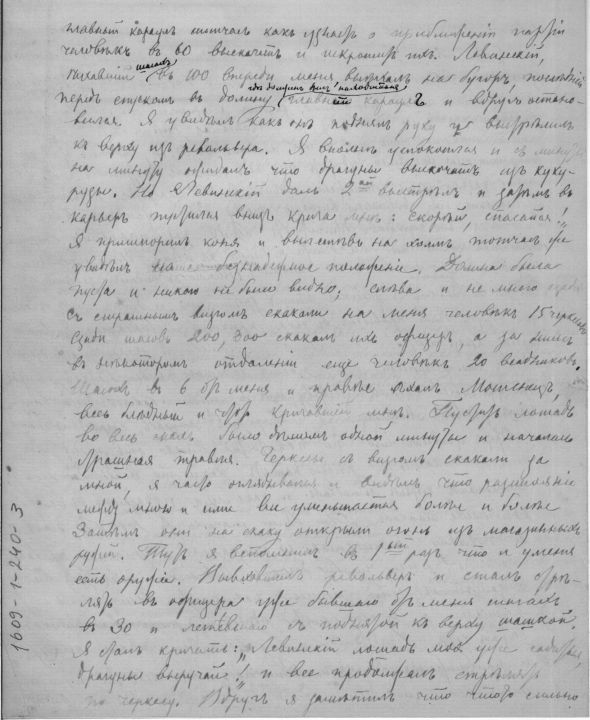 главный караулъ тотчасъ какъ узнаетъ о приближеніи партіи
человѣкъ въ 60 выскочитъ и искрошитъ ихъ. Левинскій,
ѣхавшій шагахъ въ 100 впереди меня выѣхалъ на бугоръ, послѣдній
передъ спускомъ въ долину, гдѣ долженъ былъ находиться главный караулъ и вдругъ остано-
вился. Я увидѣлъ какъ онъ поднялъ руку и выстрѣлилъ
къ верху изъ револьвера. Я вполнѣ успокоился и съ минуты
на минуту ожидалъ что драгуны выскочатъ изъ куку-
рузы. Но Левинскій далъ 2ой выстрѣлъ и затѣмъ въ
карьеръ пустился внизъ крича мнѣ: скорѣй, спасайся!
Я пришпорилъ коня и вылетѣвъ на холмъ тотчасъ же
увидѣлъ безнадежное положеніе. Долина была
пуста и никого не было видно; слѣва и не много сзади
съ страшнымъ визгомъ скакали на меня человѣкъ 15 черкесовъ
сзади шаговъ 200, 300 скакалъ ихъ офицеръ, а за нимъ
въ нѣкоторомъ отдаленіи еще человѣкъ 20 всадниковъ.
Шагахъ въ 6 отъ меня и правѣе ѣхалъ
весь блѣдный и что-то кричавшій мнѣ. Пустить лошадь
во весь скокъ было дѣломъ одной минуты и началась
страшная травля. Черкесы съ визгомъ скакали за
мной, я часто оглядывался и видѣлъ что разстояніе
между мною и ими все уменьшается болѣе и болѣе
Затѣмъ они на скаку открыли огонь изъ магазинныхъ
ружей. Тутъ я вспомнилъ въ 1ый разъ что и у меня
есть оружіе. Выхватилъ револьверъ и сталъ стрѣ-
лять въ офицера уже бывшаго отъ меня шагахъ
въ 30 и летѣвшаго съ поднятой къ верху шашкой,
Я сталъ кричать: „Левинскій лошадь моя уже
драгуны выручай"! и все продолжалъ стрѣлять
по черкесу. Вдругъ я замѣтилъ что что-то сильно
1609-1-240-3